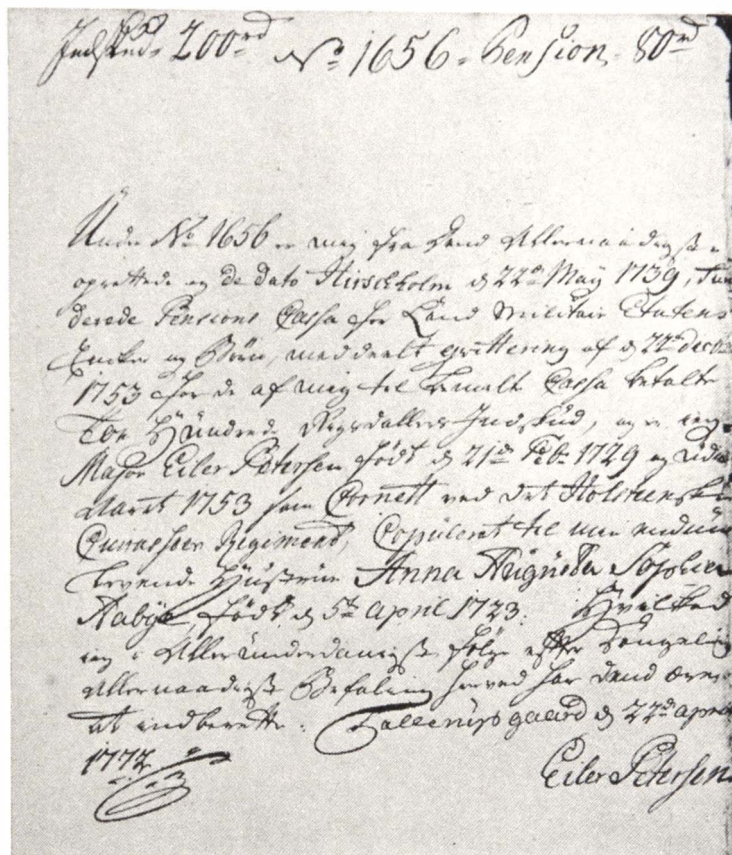 Indskud 200rd No 1656. Pension. 80rd
Under No 1656 er mig fra dend Allernaadigste
oprettede og de dato Hirschholm d 22de May 1739, fun
derede Pensions Cassa for Land Militair Etatens
Encker og Børn, meddeelt qvittering af d 22de decbr
1753 for de af mig til bemelte Cassa betalte
Toe Hundrede Rigsdallers Indskud, og er ieg
Major Eiler Petersen født d 21de Feb. 1729 og
Aaret 1753 som Cornett ved det Holstenske
Cuirasseer Regiment, Copuleret til min endnu
levende Hustrue Anna Augusta Sophia
Aabye, født d 5te april 1723. Hvilket
ieg i Allerunderdanigst følge efter Kongelig
Allernaadigst Befaling herved har dend ære
at indberette. Gaard d 22de april
1772
Eiler Petersen